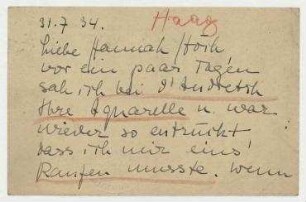 31.7 34. Haag
Liebe Hannah Höch
vor ein paar Tagen
sah ich bei d'Audretsch
Ihre Aquarelle u. war
wieder so entzückt
dass ich mir eins
kaufen musste. Wenn